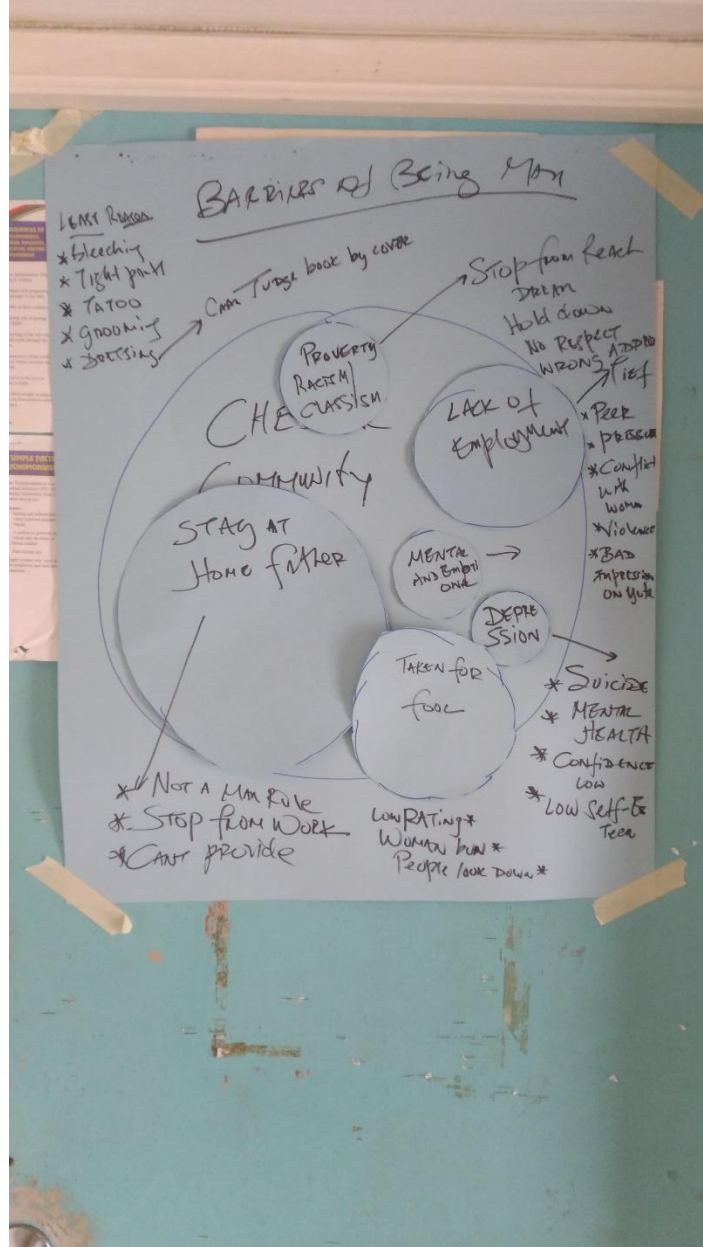 BARRIERS of Being Man
LEAST Reason
* Bleaching
* Tight pant
* TATOO
* grooming
* DRESSING
Cant Judge book by cover
Stop from Reach
DREAM
Hold down
No Respect
WRONG
TIEF
PROVERTY
RACISM/
CLASSISM
LACK of
Employment
* Peer
* pressure
* Conflict
with
woman
* Violence
* BAD
Impression
on yute
COMMUNITY
STAY AT
Home father
MENTAL
AND Emoti
onal
DEPRE
SSION
TAKEN for
fool
* Suicide
* MENTAL
HEALTH
* Confidence
Low
* Low Self-Es
Teem
* NOT A MAN Role
* STOP from WORK
* CANT PROVIDE
Low RATING *
Woman bun *
People look Down *
SIMPLE FACTS